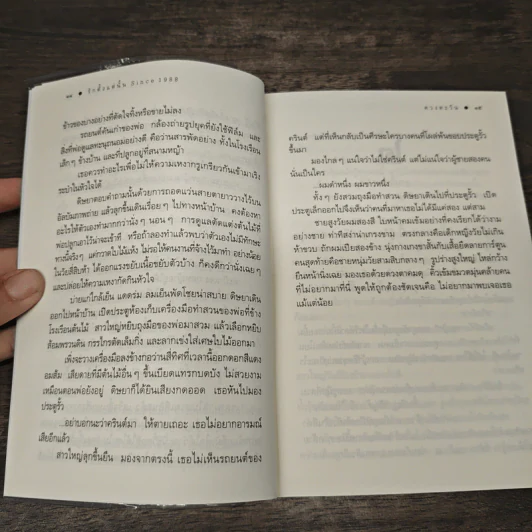 ๑๘ • รักตั้งแต่นั้น Since 1988
ข้าวของบางอย่างที่ตัดใจทิ้งหรือขายไม่ลง
รถยนต์คันเก่าของพ่อ กล้องถ่ายรูปยุคที่ยังใช้ฟิล์ม และ
สิ่งที่พ่อดูแลทะนุถนอมอย่างดี คือว่านสารพัดอย่าง ทั้งในโรงเรือน
เล็กๆ ข้างบ้าน และที่ปลูกอยู่ที่สนามหญ้า
เธอควรทำอะไรเพื่อไม่ให้ความเหงากรูเกรียวกันเข้ามาเริง
ระบำในหัวใจได้
ดิษยาตอบคำถามนั้นด้วยการถอดแว่นสายตายาววางไว้บน
อัลบัมภาพถ่าย แล้วลุกขึ้นเดินเรื่อยๆ ไปทางหน้าบ้าน คงต้องหา
อะไรให้ตัวเองทำมากกว่านั่ง นอนๆ การดูแลตัดแต่งต้นไม้ที่
พ่อปลูกเอาไว้น่าจะเข้าที หรือถ้าลองทำแล้วพบว่าตัวเองไม่มีทักษะ
ทางนี้จริงๆ แค่กวาดใบไม้แห้ง ไม่รอให้คนงานที่จ้างไว้มาทำ อย่างน้อย
ในวัยสี่สิบห้า ได้ออกแรงขยับเนื้อขยับตัวบ้าง ก็คงดีกว่านั่งเฉยๆ
และปล่อยให้ความเหงากัดกินหัวใจ
บ่ายแก่ใกล้เย็น แดดร่ม ลมเย็นพัดโชยน่าสบาย ดิษยาเดิน
ออกไปหน้าบ้าน เปิดประตูห้องเก็บเครื่องมือทำสวนของพ่อที่ข้าง
โรงเรือนต้นไม้ สาวใหญ่หยิบถุงมือของพ่อมาสวม แล้วเลือกหยิบ
ส้อมพรวนดิน กรรไกรตัดเล็มกิ่ง และลากเข่งใส่เศษใบไม้ออกมา
เพิ่งจะวางเครื่องมือลงข้างกอว่านสี่ทิศที่เวลานี้ออกดอกสีแดง
อมส้ม เสียดายที่มีต้นไม้อื่นๆ ขึ้นเบียดแทรกบดบัง ไม่สวยงาม
เหมือนตอนพ่อยังอยู่ ดิษยาก็ได้ยินเสียงกดออด เธอหันไปมอง
ประตูรั้ว
...อย่าบอกนะว่าครินต์มา ให้ตายเถอะ เธอไม่อยากอารมณ์
เสียอีกแล้ว
สาวใหญ่ลุกขึ้นยืน มองจากตรงนี้ เธอไม่เห็นรถยนต์ของ
ดวงตะวัน • ๑๙
ครินต์ แต่ที่เห็นกลับเป็นศีรษะใครบางคนที่โผล่พ้นขอบประตูรั้ว
ขึ้นมา
มองไกลๆ แน่ใจว่าไม่ใช่ครินต์ แต่ไม่แน่ใจว่าผู้ชายสองคน
นั่นเป็นใคร
...ผมดำหนึ่ง ผมขาวหนึ่ง
ทั้งๆ ยังสวมถุงมือทำสวน ดิษยาเดินไปที่ประตูรั้ว เปิด
ประตูเล็กออกไปจึงเห็นว่าคนที่มาหาเธอไม่ได้มีแค่สอง แต่สาม
ชายสูงวัยผมสองสี ใบหน้าคมเข้มอย่างที่คงเรียกได้ว่างาม
อย่างชาย ท่าทีสง่าน่าเกรงขาม ตรงกลางคือเด็กหญิงวัยไม่เกิน
ห้าขวบ ถักผมเปียสองข้าง นุ่งกางเกงขาสั้นกับเสื้อยืดลายการ์ตูน
คนสุดท้ายคือชายหนุ่มวัยสามสิบกลางๆ รูปร่างสูงใหญ่ ไหล่กว้าง
ยืนหน้านิ่งเฉย มองเธอด้วยดวงตาคมดุ คิ้วเข้มขมวดมุ่นคล้ายคน
ที่ไม่อยากมาที่นี่ พูดให้ถูกต้องชัดเจนคือ ไม่อยากมาพบเจอเธอ
แม้แต่น้อย